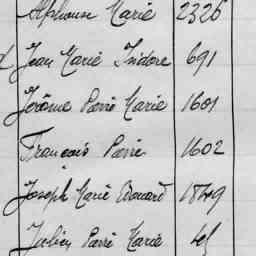 Alphonse Marie 2326
Jean Marie Isidore 691
Jérôme Pierre Marie 1601
François Pierre 1602
Joseph Marie Edouard 1849
Julien Pierre Marie